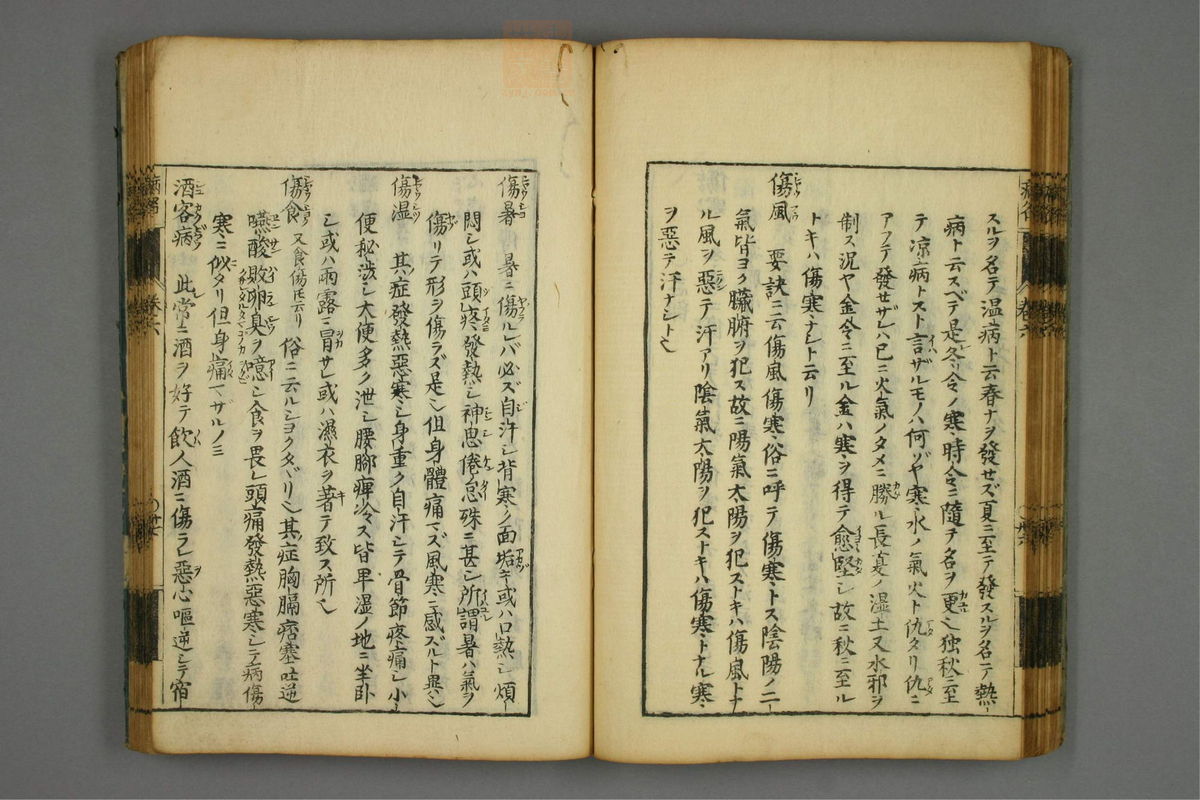 スルヲ名テ温病ト云春ナヲ發セズ夏ニ至テ發スルヲ名テ熱
病ト云スベテ是冬令ノ寒時令ニ隨テ名ヲ更ユ独秋ニ至
テ凉病トスト言ザルモノハ何ゾヤ寒水ノ氣火ト仇タリ仇ニ
アフテ發セザレバ已ニ火氣ノタメニ勝ル長夏ノ湿土又水邪ヲ
制ス況ヤ金令ニ至ル金ハ寒ヲ得テ愈堅シ故ニ秋ニ至ル
トキハ傷寒ナシト云リ
傷風 要訣ニ云傷風傷寒俗ニ呼テ傷寒トス陰陽ノ二
氣皆ヨク臟腑ヲ犯ス故ニ陽氣太陽ヲ犯ストキハ傷風トナ
ル風ヲ惡テ汗アリ陰氣太陽ヲ犯ストキハ傷寒トナル寒
ヲ惡テ汗ナシト
傷暑 暑ニ傷ルレバ必ズ自汗シ背寒ク面垢キ或ハ口熱シ煩
悶シ或ハ頭疼發熱シ神思倦怠殊ニ甚シ所謂暑ハ氣ヲ
傷リテ形ヲ傷ラズ是也但身體痛マズ風寒ニ感ズルト異也
傷湿 其症發熱惡寒シ身重ク自汗シテ骨節疼痛シ小
便秘澁シ大便多ク泄シ腰脚痺冷ス皆卑湿ノ地ニ坐卧
シ或ハ雨露ニ冒サレ或ハ濕衣ヲ著テ致ス所也
傷食 又食傷氏云リ 俗ニ云ルシヨクタバリ也其症胸膈痞塞吐逆
嚥酸敗卵臭ヲ噫シ食ヲ畏レ頭痛發熱惡寒シテ病傷
寒ニ似タリ但身痛マザルノミ
酒客病 此常ニ酒ヲ好テ飲人酒ニ傷ラレ惡心嘔逆シテ宿